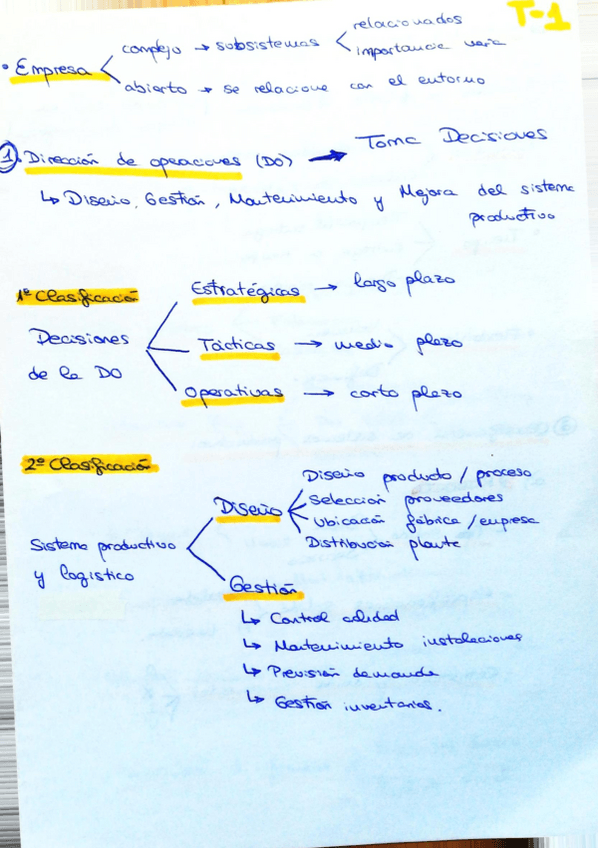 T-1
relacionados
complejo → subsistemas < importancia varia
• Empresa <
abierto → se relaciona con el entorno
1. Dirección de operaciones (DO) → Toma Decisiones
↳ Diseño, Gestión, Mantenimiento y Mejora del sistema
productivo
1ª Clasificación
Estratégicas → largo plazo
Decisiones
de la DO
Tácticas → medio plazo
Operativas → corto plazo
2ª Clasificación
Diseño
Diseño producto / proceso
Selección proveedores
Ubicación fábrica / empresa
Distribución planta
Sistema productivo
y logístico
Gestión
↳ Control calidad
↳ Mantenimiento instalaciones
↳ Previsión demanda
↳ Gestión inventarios.